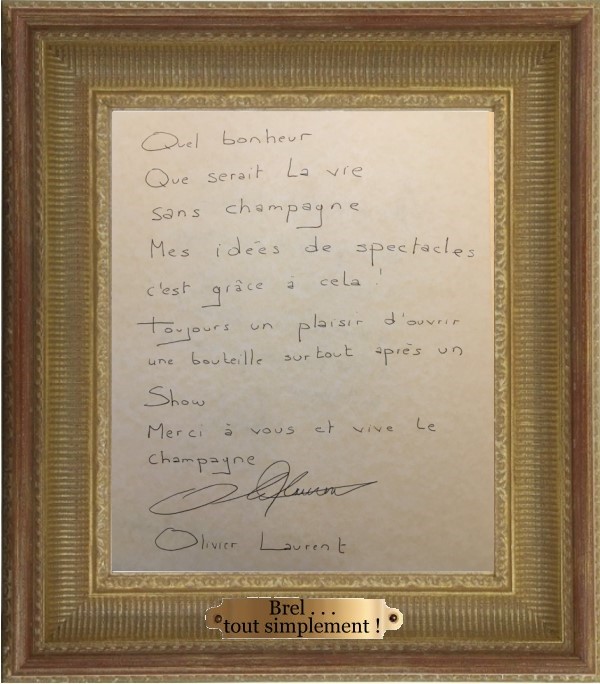 Quel bonheur
Que serait La vie
sans champagne
Mes idées de spectacles
c'est grâce à cela !
Toujours un plaisir d'ouvrir
une bouteille surtout après un
Show
Merci à vous et vive Le
champagne
Olivier Laurent
Brel . . .
tout simplement !